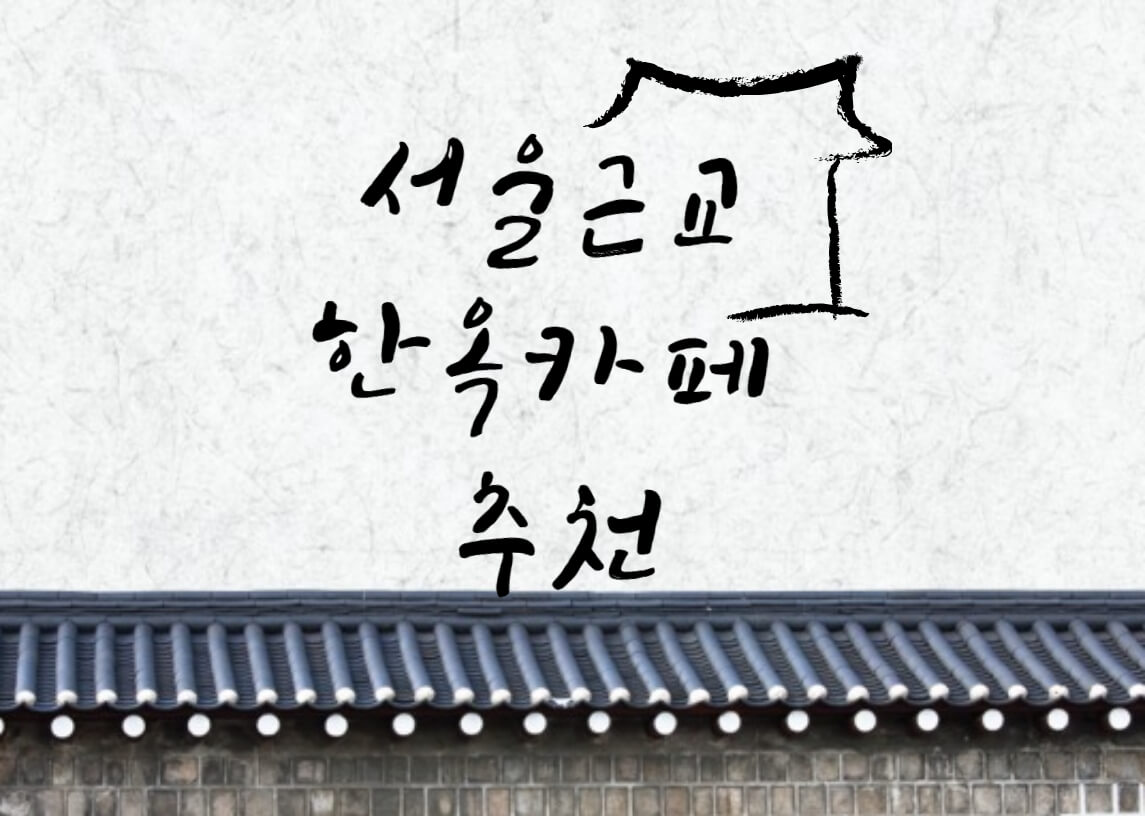 서울근교
한옥카페
추천